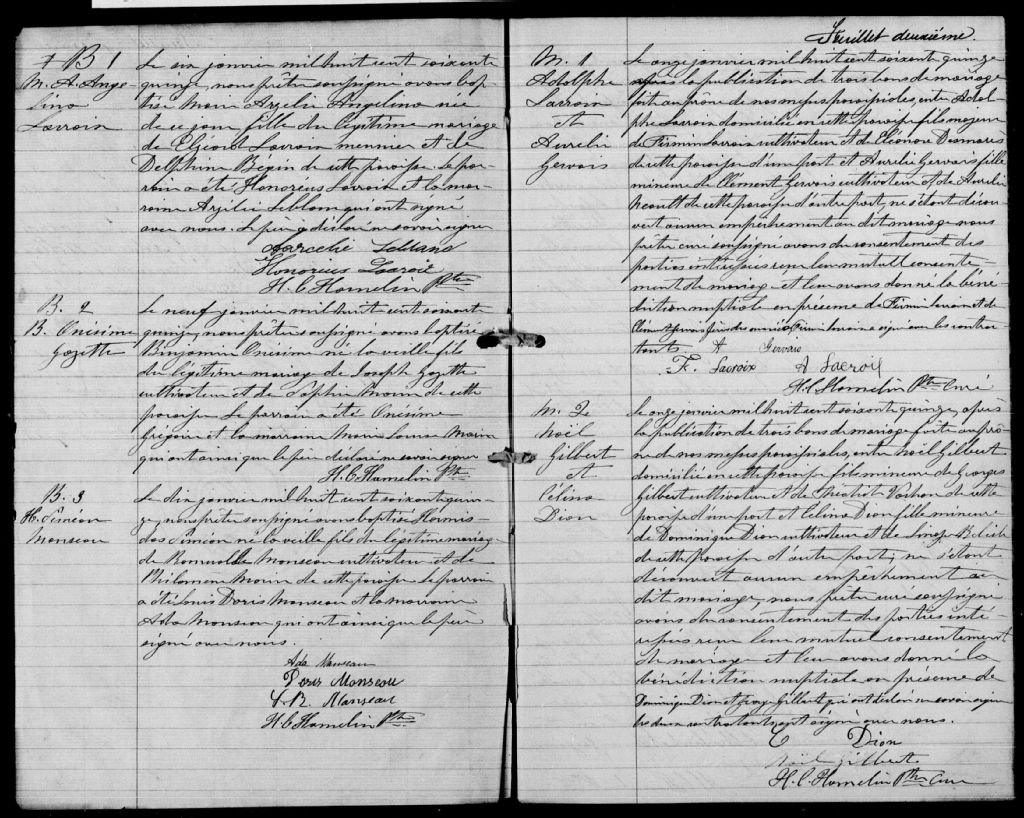 B 1
M. A. Ange-
lina
Lacroix
Le six janvier mil huit cent soixante
quinze, nous prêtre soussigné avons bap-
tisé Marie Arzelie Angelina née
de ce jour fille du légitime mariage
de Elzéard Lacroix meunier et de
Delphine Bégin de cette paroisse. Le par-
rain a été Honoreus Lacroix et la mar-
raine Arzélie Leblanc qui ont signé
avec nous. Le père a déclaré ne savoir signer
Leblanc
Honorius Lacroix
H. C. Hamelin Ptre
B. 2
B. Onésime
Gozette
Le neuf janvier mil huit cent soixante
quinze, nous prêtre soussigné avons baptisé
Benjamin Onésime né la veille fils
du légitime mariage de Joseph Gozette
cultivateur et de Sophie Morin de cette
paroisse Le parrain a été Onésime
Frégoire et la marraine Marie Louise Morin
qui ont ainsi que le père déclaré ne savoir signer
H. C. Hamelin Ptre
B. 3
H. Siméon
Monseau
Le dix janvier mil huit cent soixante quin-
ze, nous prêtre soussigné avons baptisé Hormis-
das Siméon né la veille fils du légitime mariage
de Romuald Monseau cultivateur et de
Philomène Morin de cette paroisse Le parrain
a été Louis Doris Monseau et la marraine
Ada Monseau qui ont ainsi que le père
signé avec nous.
Ada Manseau
Doris Monseau
L. R. Manseau
H. C. Hamelin Ptre
Feuillet deuxième.
M. 1
Adolphe
Lacroix
et
Aurelie
Gervais
Le onze janvier mil huit cent soixante quinze
après la publication de trois bans de mariage
faite au prône de nos messes paroissiales, entre Adol-
phe Lacroix domicilié en cette paroisse fils majeur
de Firmin Lacroix cultivateur et de Eléonore Desmarès
de cette paroisse d'une part et Aurelie Gervais fille
mineure de Clément Gervais cultivateur et de Aurelie
Heoult de cette paroisse d'autre part, ne s'étant décou-
vert aucun empêchement au dit mariage nous
prêtre curé soussigné avons du consentement des
parties intéressées reçu leur mutuel consente-
ment de mariage et leur avons donné la béné-
diction nuptiale en présence de Firmin Lacroix et de
Clément Gervais pères des mariés Firmin Lacroix a signé avec les contrac-
tants A Gervais
F. Lacroix A Lacroix
H. C. Hamelin Ptre Curé
M. 2
Noël
Gilbert
et
Célina
Dion
Le onze janvier mil huit cent soixante quinze, après
la publication de trois bans de mariage faite au prô-
ne de nos messes paroissiales, entre Noël Gilbert
domicilié en cette paroisse fils mineur de Georges
Gilbert cultivateur et de Théotist Vachon de cette
paroisse d'une part et Célina Dion fille mineure
de Dominique Dion cultivateur et de
de cette paroisse d'autre part, ne s'étant
découvert aucun empêchement au
dit mariage, nous prêtre curé soussigné
avons du consentement des parties inté-
ressées reçu leur mutuel consentement
de mariage et leur avons donné la
bénédiction nuptiale en présence de
Dominique Dion et George Gilbert qui ont déclaré ne savoir signer
les deux contractants ont signé avec nous.
C Dion
Noël Gilbert
H. C. Hamelin Ptre Curé